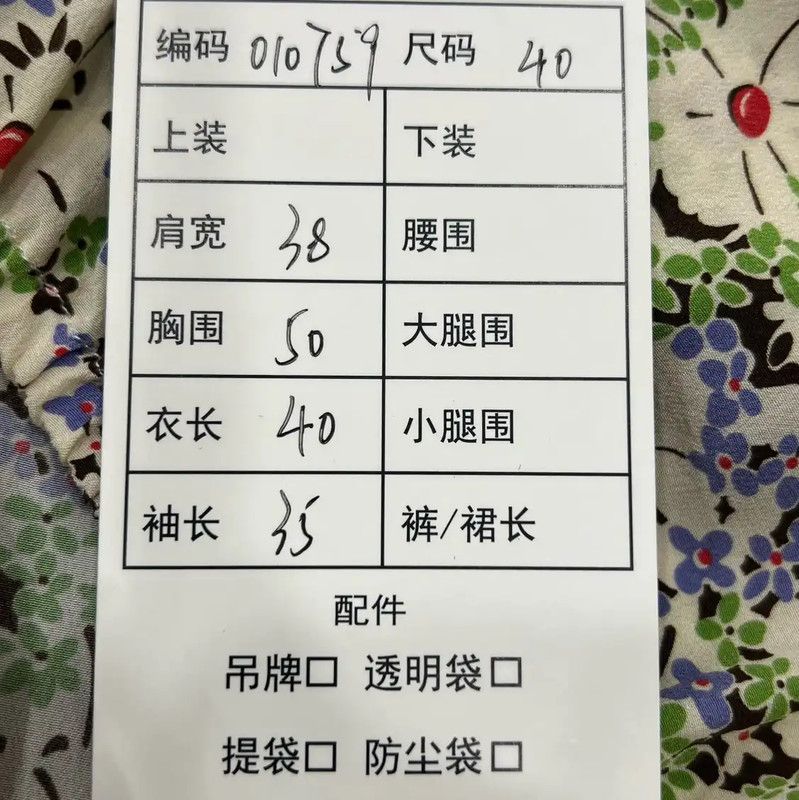 编码 010759 尺码 40
上装 下装
肩宽 38 腰围
胸围 50 大腿围
衣长 40 小腿围
袖长 35 裤/裙长
配件
吊牌□ 透明袋□
提袋□ 防尘袋□